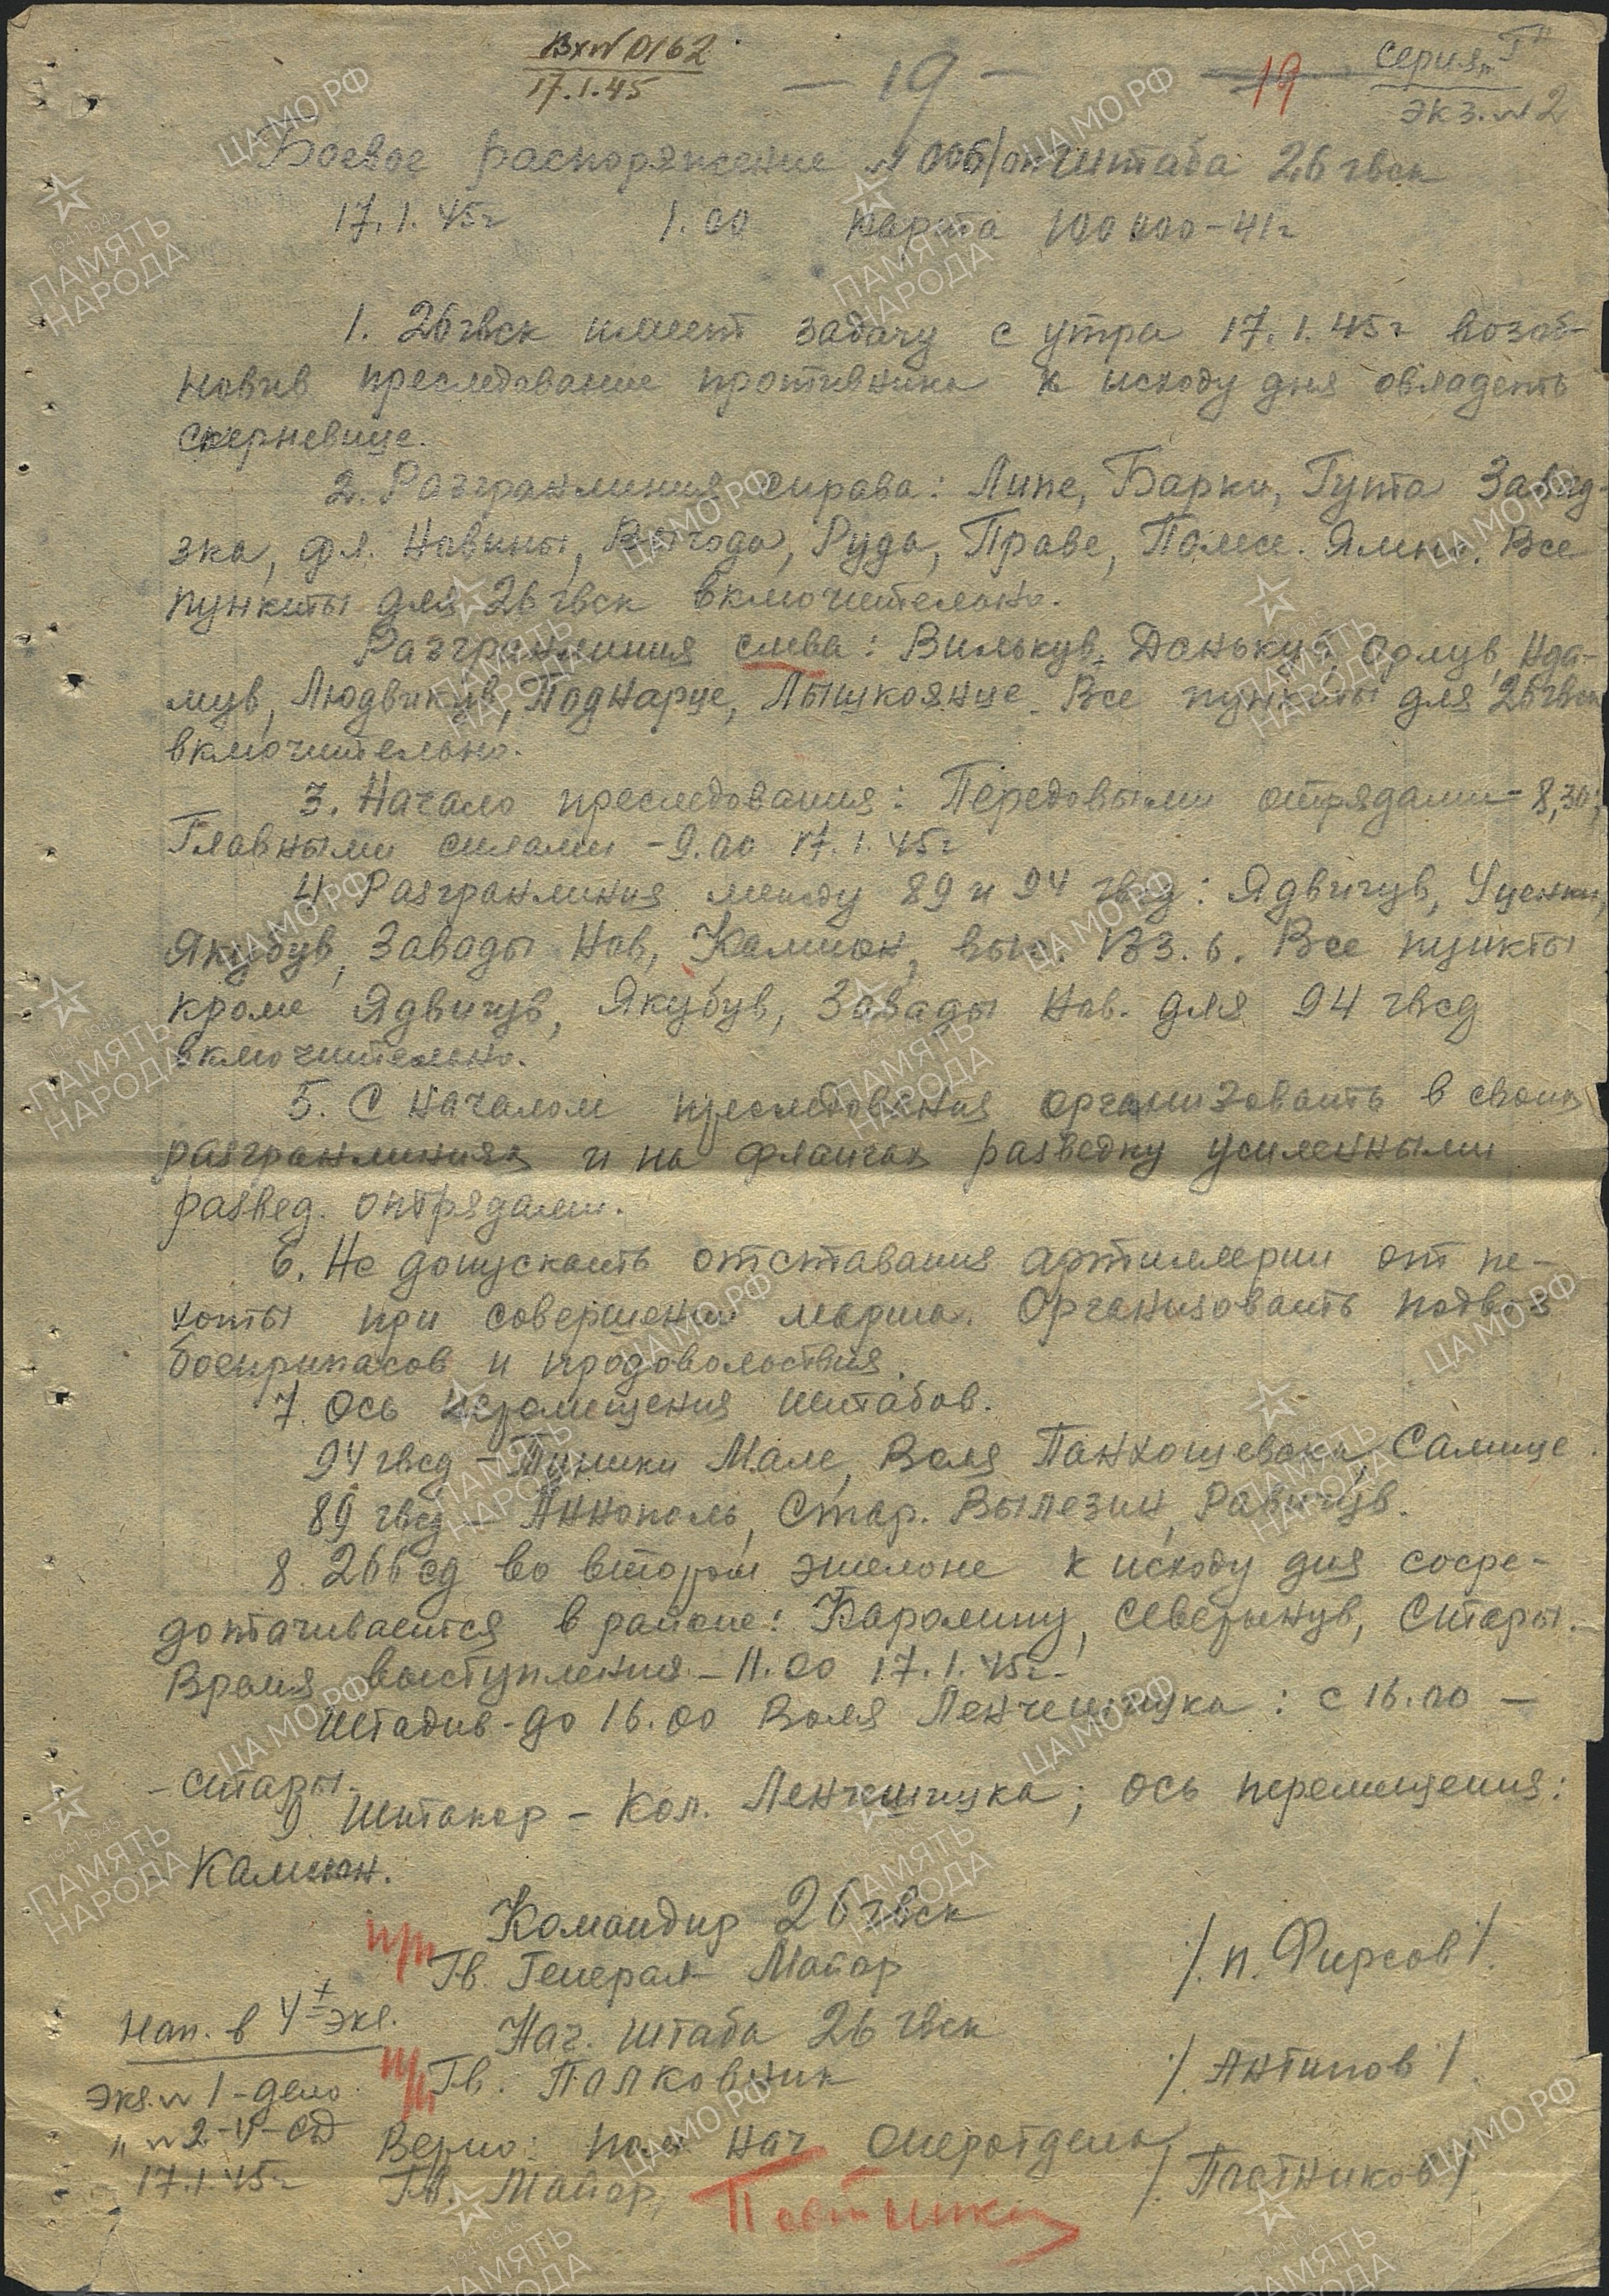 Вх№ 0162
17.1.45
— 19 —
19
Серия „Г"
Экз. №2
Боевое распоряжение №006/оп Штаба 26 гвск
17.1.45г 1.00 Карта 100000-41г
1. 26 гвск имеет задачу с утра 17.1.45г возоб-
новив преследование противника к исходу дня овладеть
Скерневице.
2. Разгранлиния справа: Липе, Барки, Гута Завад-
зка, фл. Новины, Выгода, Руда, Праве, Помсе. Ямно. Все
пункты для 26 гвск включительно.
Разгранлиния слева: Вилькув, Данькув, Орлув, Ада-
мув, Людвикув, Поднарце, Лышковице. Все пункты для 26 гвск
включительно.
3. Начало преследования: Передовыми отрядами - 8,30;
Главными силами - 9.00 17.1.45г
4. Разгранлиния между 89 и 94 гвсд: Ядвигув,
Якубув, Завады Нов, Камион, выс. 133.6. Все пункты
кроме Ядвигув, Якубув, Завады Нов. для 94 гвсд
включительно.
5. С началом преследования организовать в своих
разгранлиниях и на флангах разведку усиленными
развед. отрядами.
6. Не допускать отставания артиллерии от пе-
хоты при совершении марша. Организовать подвоз
боеприпасов и продовольствия.
7. Ось перемещения штабов.
94 гвсд - Туники Мале, Воля Панкошевска, Самице.
89 гвсд - Аннополь, Стар. Вылезин, Равигув.
8. 266 сд во втором эшелоне к исходу дня сосре-
дотачивается в районе: Каролину, Северынув, Стары.
Время выступления - 11.00 17.1.45г.
Штадив - до 16.00 Воля Ленчешицка: с 16.00 -
- Стары.
9 Штакор - Кол. Ленчешицка; ось перемещения:
Камион.
Командир 26 гвск
п/п
Гв. Генерал Майор /. п. Фирсов /.
Нап. в 4х экз.
Нач. штаба 26 гвск
п/п
Гв. Полковник /. Антипов /.
Экз. № 1 - дело
" № 2-4 - сд
17.1.45г
Верно: Пом. нач. Оперотдела
Гв. Майор, /. Постников /